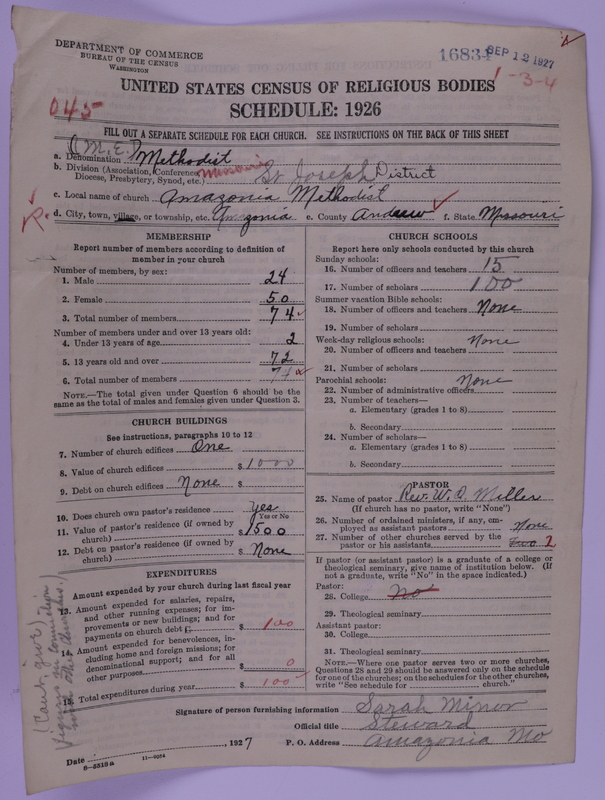 DEPARTMENT OF COMMERCE
BUREAU OF THE CENSUS
WASHINGTON
16834 SEP 12 1927
1-3-4
UNITED STATES CENSUS OF RELIGIOUS BODIES
045
SCHEDULE: 1926
FILL OUT A SEPARATE SCHEDULE FOR EACH CHURCH. SEE INSTRUCTIONS ON THE BACK OF THIS SHEET
(M.E.)
a. Denomination Methodist
b. Division (Association, Conference, Missouri St Joseph District
Diocese, Presbytery, Synod, etc.)
c. Local name of church Amazonia Methodist
d. City, town, village, or township, etc. Amazonia e. County Andrew f. State Missouri
MEMBERSHIP
Report number of members according to definition of
member in your church
Number of members, by sex:
1. Male 24
2. Female 50
3. Total number of members 74
Number of members under and over 13 years old:
4. Under 13 years of age 2
5. 13 years old and over 72
6. Total number of members 74
NOTE.—The total given under Question 6 should be
same as the total of males and females given under Question 3.
CHURCH BUILDINGS
See instructions, paragraphs 10 to 12
7. Number of church edifices One
8. Value of church edifices $ 1000
9. Debt on church edifices None $
10. Does church own pastor's residence Yes
Yes or No
11. Value of pastor's residence (if owned by
church) $ 1500
12. Debt on pastor's residence (if owned by
church) $ None
EXPENDITURES
Amount expended by your church during last fiscal year
13. Amount expended for salaries, repairs,
and other running expenses; for im-
provements or new buildings; and for
payments on church debt $ 100
14. Amount expended for benevolences, in-
cluding home and foreign missions; for
denominational support; and for all
other purposes $ 0
15. Total expenditures during year $ 100
(Cant give)
figures in connection
with other churches.)
CHURCH SCHOOLS
Report here only schools conducted by this church
Sunday schools:
16. Number of officers and teachers 15
17. Number of scholars 100
Summer vacation Bible schools:
18. Number of officers and teachers None
19. Number of scholars
Week-day religious schools: None
20. Number of officers and teachers
21. Number of scholars
Parochial schools: None
22. Number of administrative officers
23. Number of teachers—
a. Elementary (grades 1 to 8)
b. Secondary
24. Number of scholars—
a. Elementary (grades 1 to 8)
b. Secondary
PASTOR
25. Name of pastor Rev. W. O. Miller
(If church has no pastor, write "None")
26. Number of ordained ministers, if any, em-
ployed as assistant pastors None
27. Number of other churches served by the
pastor or his assistants Two 2
If pastor (or assistant pastor) is a graduate of a college or
theological seminary, give name of institution below. (If
not a graduate, write "No" in the space indicated.)
Pastor:
28. College No
29. Theological seminary
Assistant pastor:
30. College
31. Theological seminary
NOTE.—Where one pastor serves two or more churches,
Questions 28 and 29 should be answered only on the schedule
for one of the churches; on the schedules for the other churches,
write "See schedule for church."
Signature of person furnishing information Sarah Minor
Official title Steward
Date , 1927 P. O. Address Amazonia Mo
6-5518a 11-9384